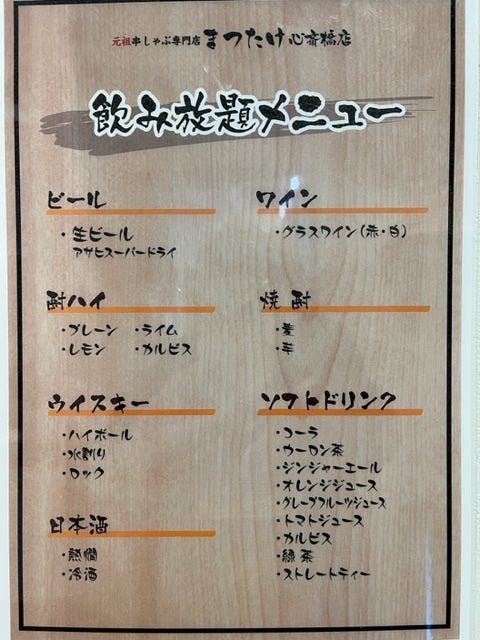 元祖串しゃぶ専門店 まつたけ 心斎橋店
飲み放題メニュー
ビール
・生ビール
アサヒスーパードライ
酎ハイ
・プレーン ・ライム
・レモン ・カルピス
ウイスキー
・ハイボール
・水割り
・ロック
日本酒
・熱燗
・冷酒
ワイン
・グラスワイン(赤・白)
焼酎
・麦
・芋
ソフトドリンク
・コーラ
・ウーロン茶
・ジンジャーエール
・オレンジジュース
・グレープフルーツジュース
・トマトジュース
・カルピス
・緑茶
・ストレートティー